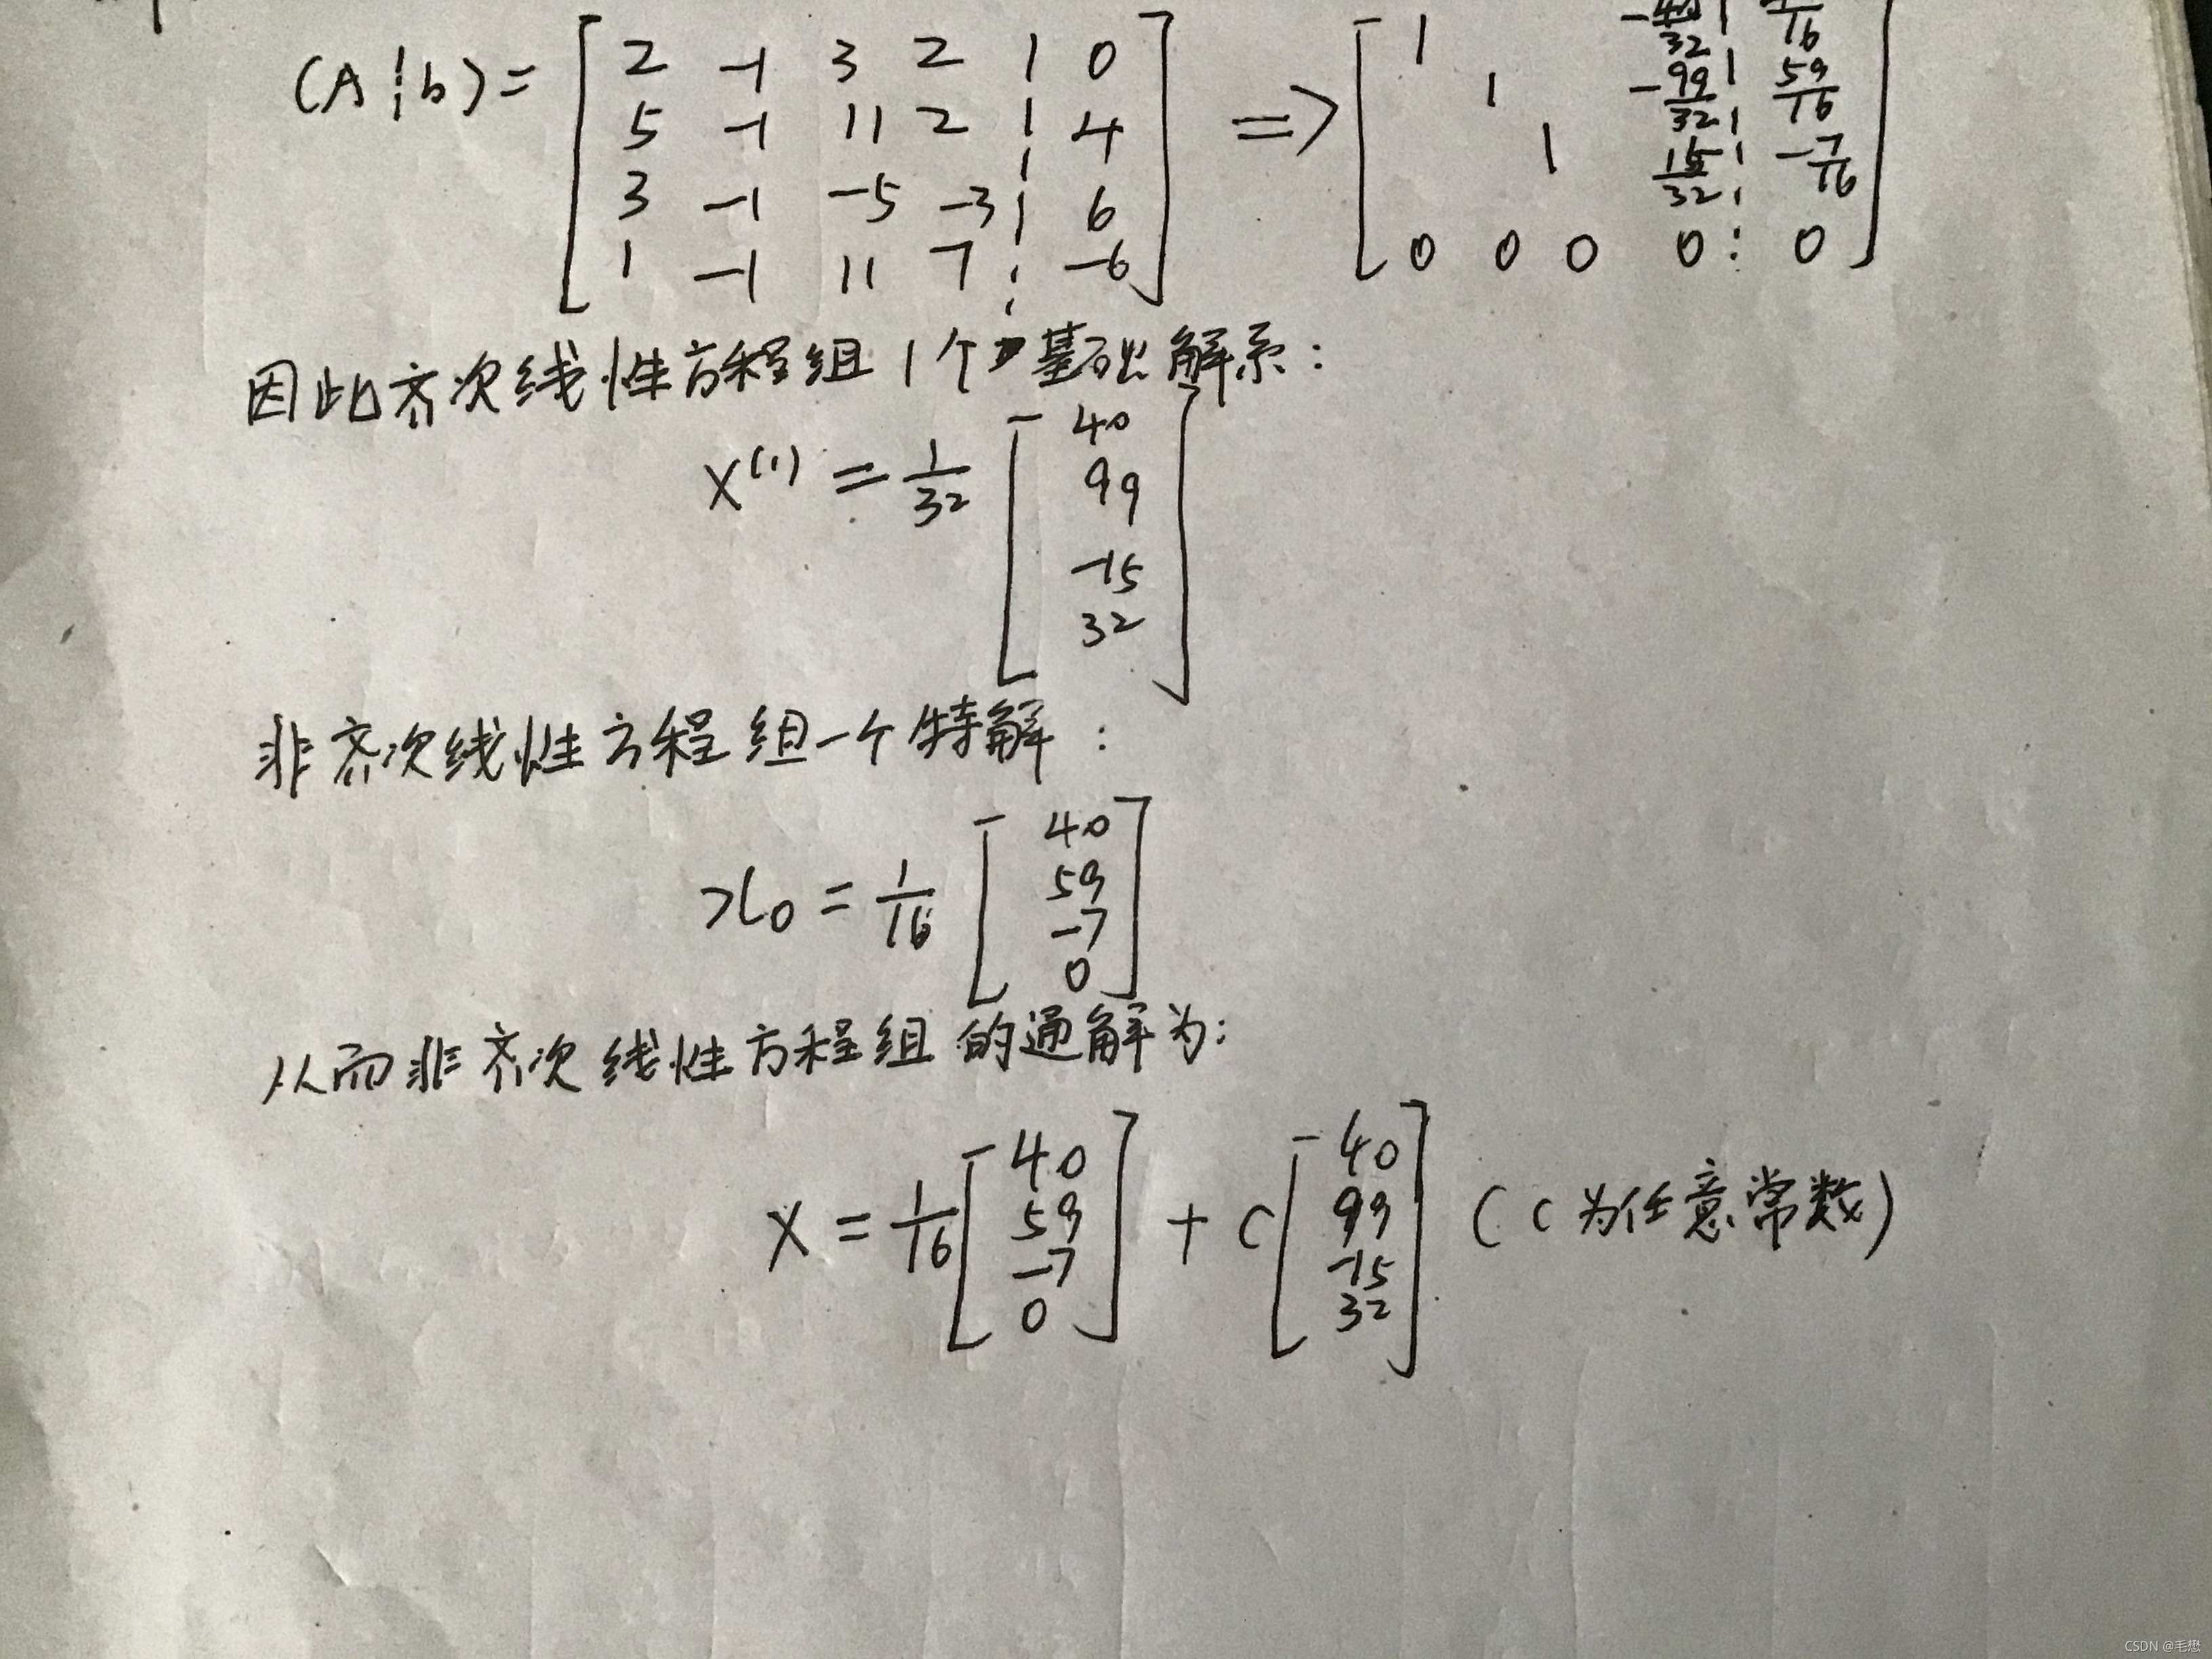 (A ¦ b) = [ 2 -1 3 2 ¦ 0 ; 5 -1 11 2 ¦ 4 ; 3 -1 -5 -3 ¦ 6 ; 1 -1 11 7 ¦ -6 ] => [ 1 -40/32 ¦ /16 ; 1 -99/32 ¦ 59/16 ; 1 15/32 ¦ -7/16 ; 0 0 0 0 ¦ 0 ]
因此齐次线性方程组1个基础解系:
X⁽¹⁾ = 1/32 [ 40 ; 99 ; -15 ; 32 ]
非齐次线性方程组一个特解:
x₀ = 1/16 [ 40 ; 59 ; -7 ; 0 ]
从而非齐次线性方程组的通解为:
X = 1/16 [ 40 ; 59 ; -7 ; 0 ] + C [ 40 ; 99 ; -15 ; 32 ] (C为任意常数)
CSDN @毛懋